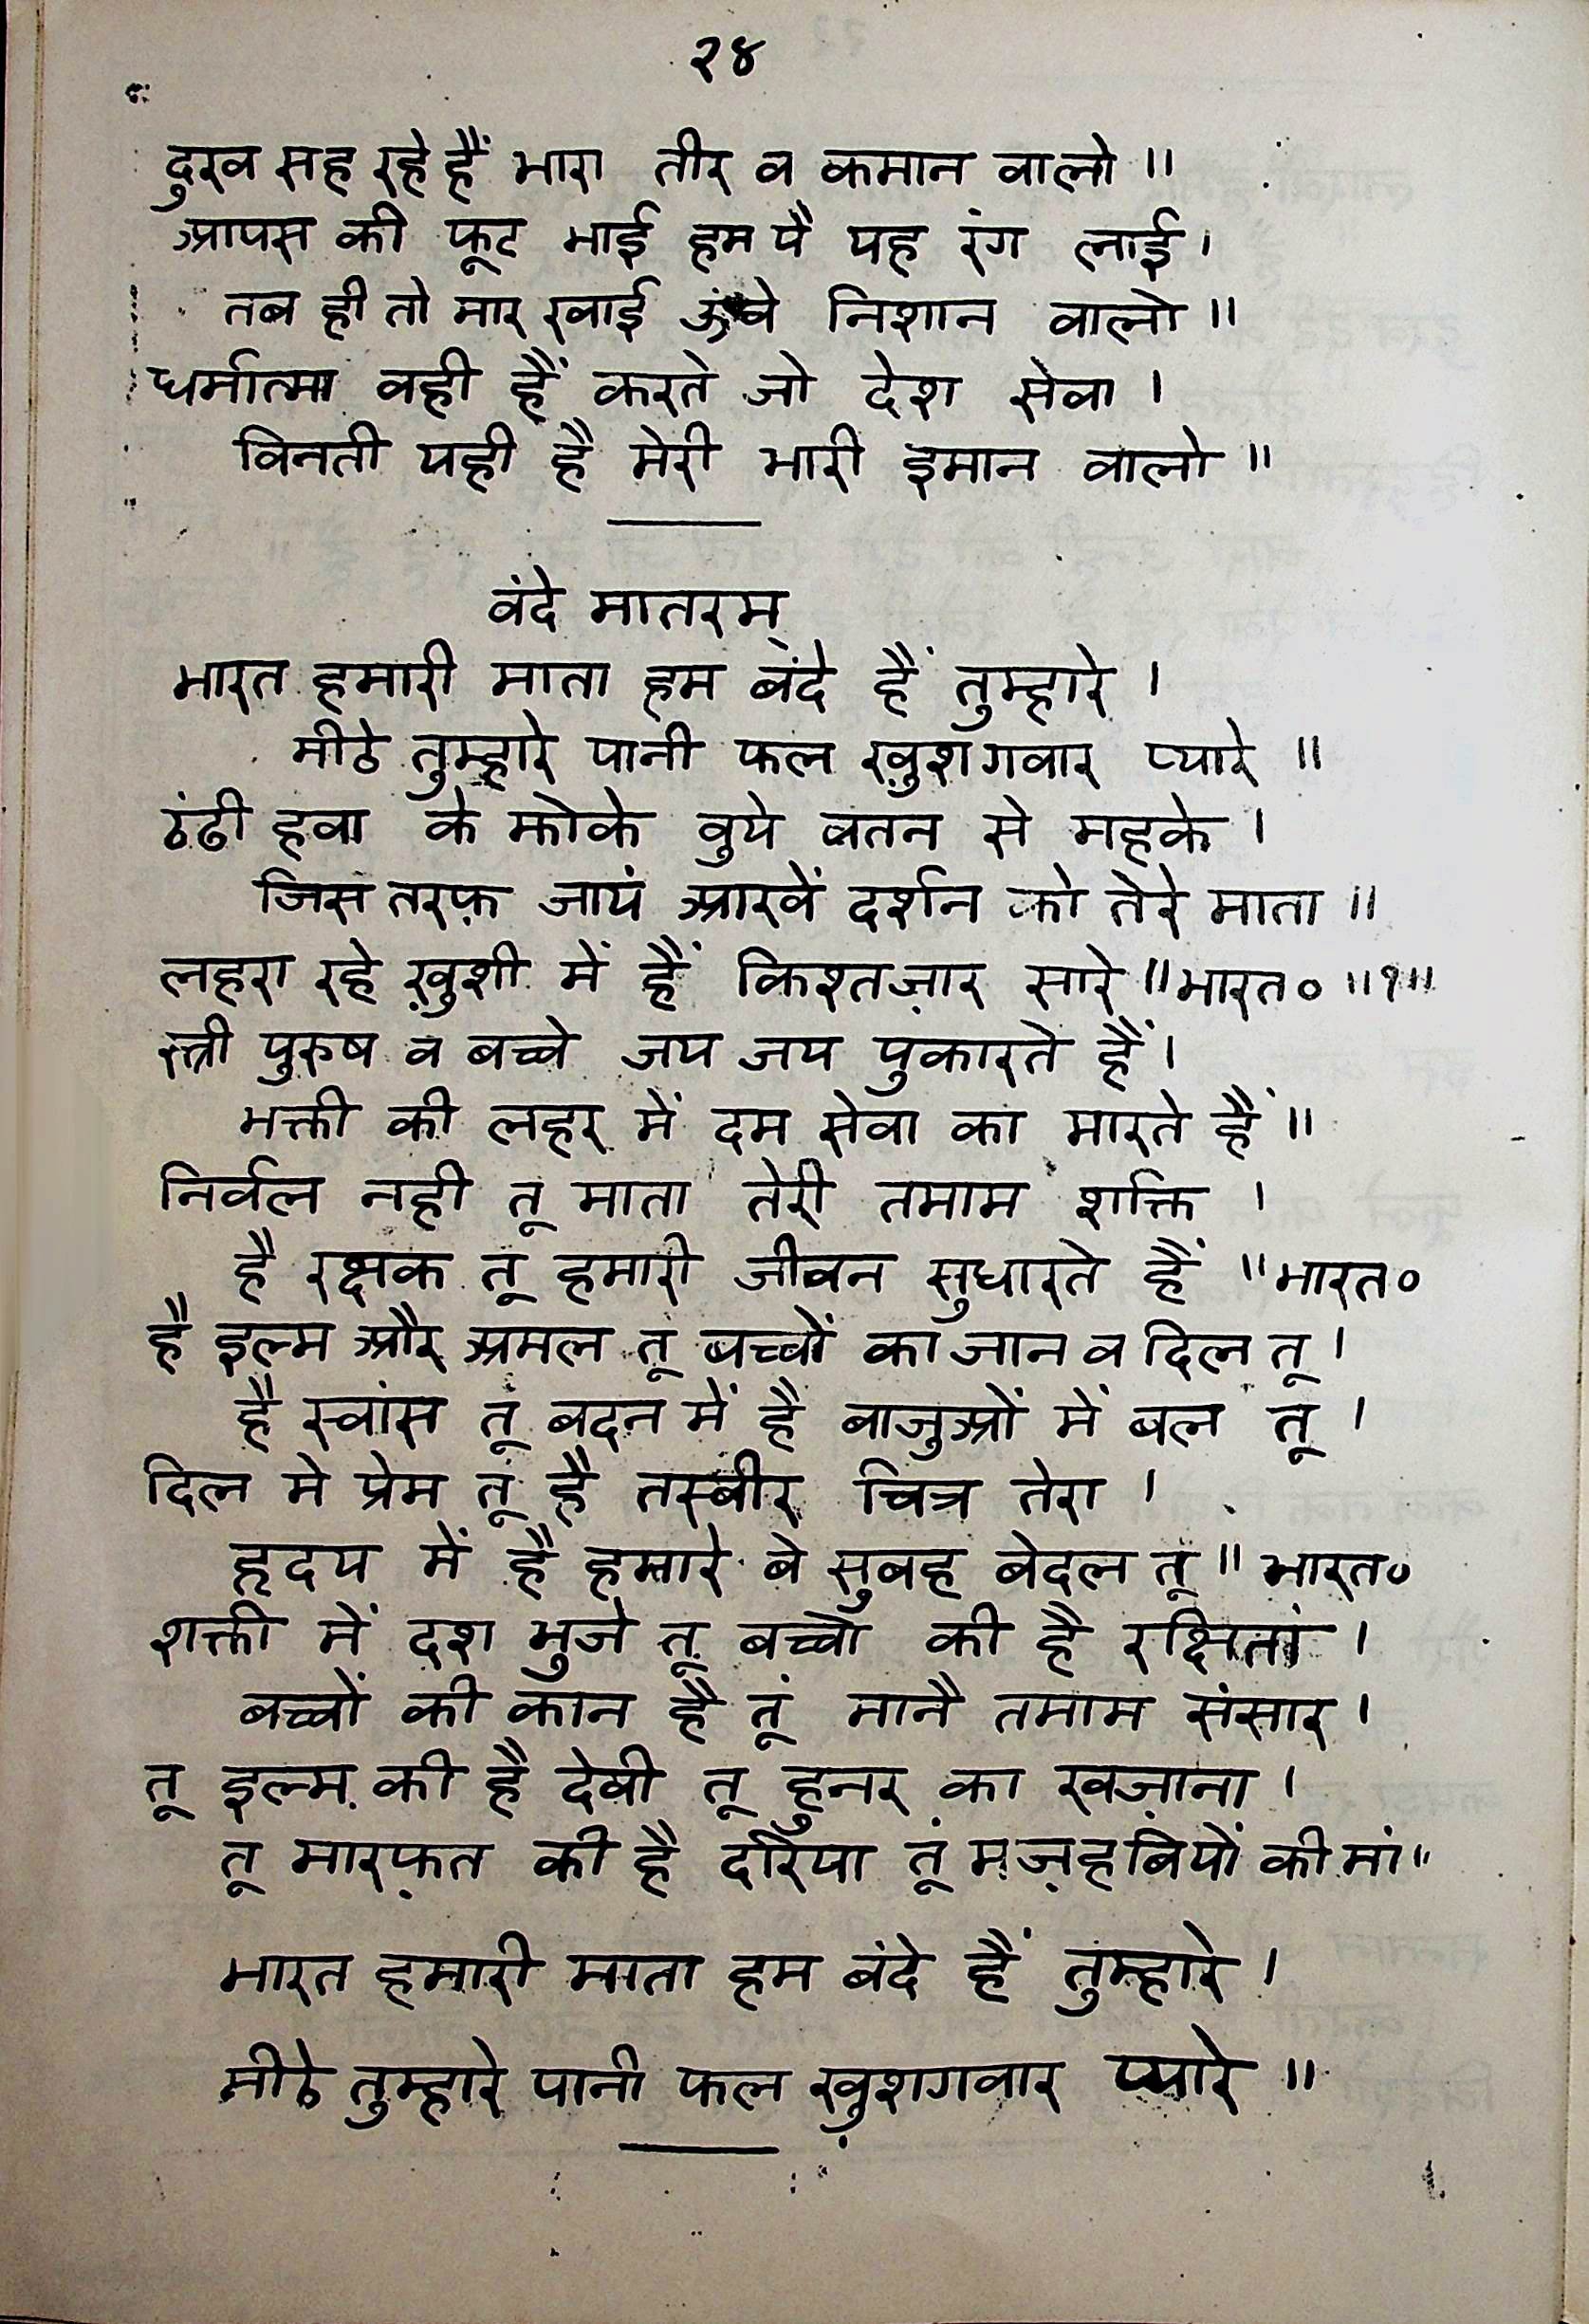 २४
दुख सह रहे हैं भारा तीर व कमान वालो ॥
आपस की फूट भाई हम पै यह रंग लाई।
तब ही तो मार खाई ऊंचे निशान वालो ॥
धर्मात्मा वही हैं करते जो देश सेवा ।
विनती यही है मेरी भारी इमान वालो ॥
वंदे मातरम्
भारत हमारी माता हम बंदे हैं तुम्हारे ।
मीठे तुम्हारे पानी फल ख़ुशगवार प्यारे ॥
ठंढी हवा के झोके वुये वतन से महके ।
जिस तरफ़ जायं आखें दर्शन को तेरे माता ॥
लहरा रहे ख़ुशी में हैं किश्तज़ार सारे ॥ भारत० ॥१॥
स्त्री पुरुष व बच्चे जय जय पुकारते हैं।
भक्ती की लहर में दम सेवा का मारते हैं ॥
निर्वल नही तू माता तेरी तमाम शक्ति ।
है रक्षक तू हमारी जीवन सुधारते हैं ॥ भारत०
है इल्म और अमल तू बच्चों का जान व दिल तू ।
है स्वांस तू बदन में है बाजुओं में बल तू ।
दिल मे प्रेम तू है तस्बीर चित्र तेरा ।
हृदय में है हमारे बे सुबह बेदल तू ॥ भारत०
शक्ती में दश भुजे तू बच्चों की है रक्षिता ।
बच्चों की कान है तूं मानै तमाम संसार ।
तू इल्म की है देवी तू हुनर का खज़ाना ।
तू मारफ़त की है दरिया तूं मज़हबियों की मां ॥
भारत हमारी माता हम बंदे हैं तुम्हारे ।
मीठे तुम्हारे पानी फल ख़ुशगवार प्यारे ॥